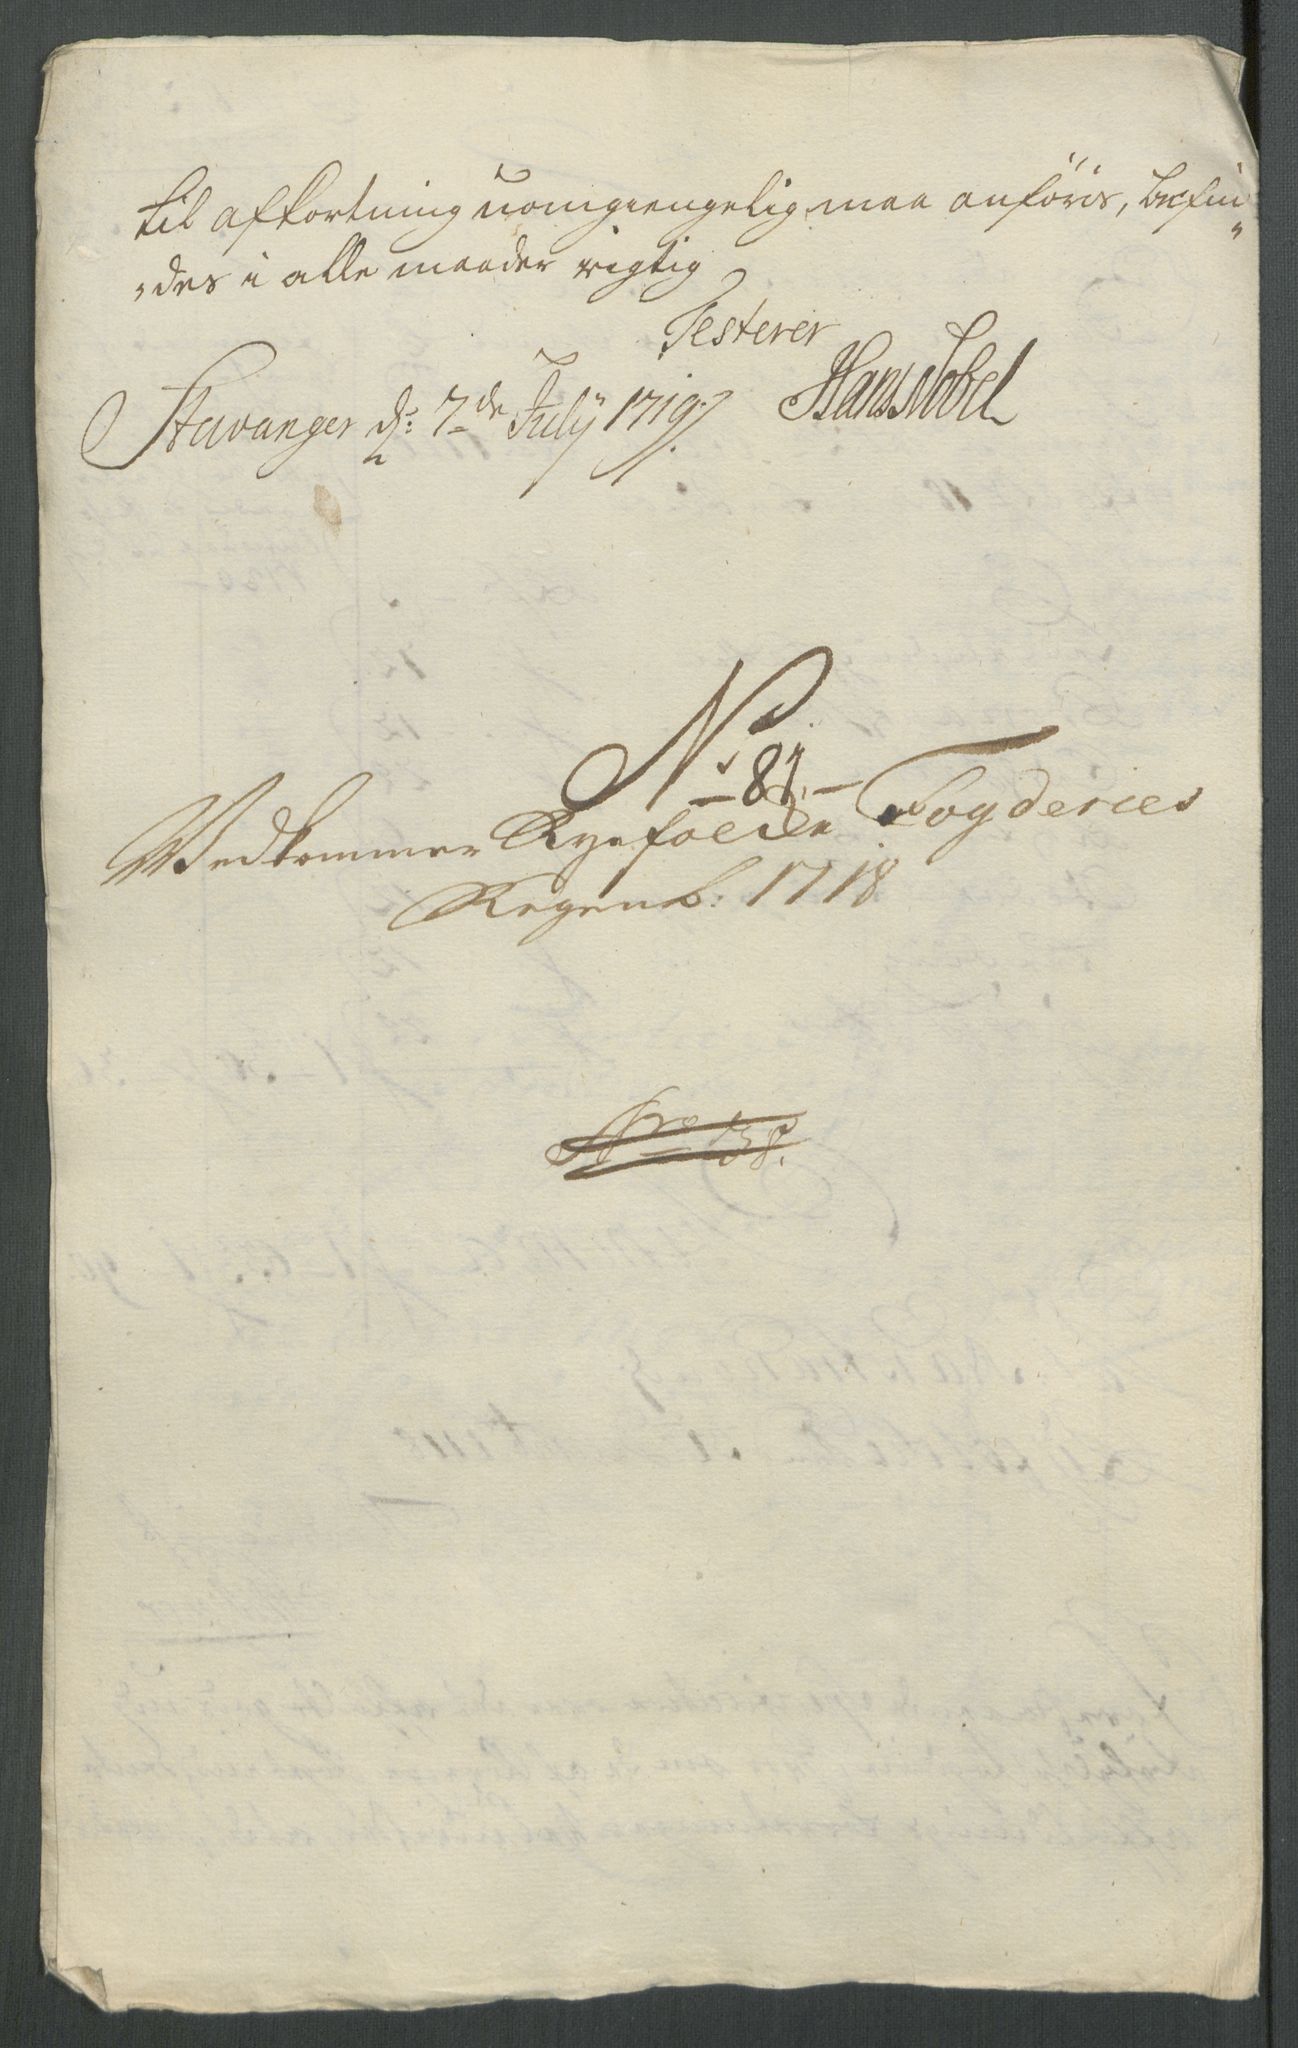 til afkortning uomgiengelig maa anföris, befin„
„des i alle maader rigtig
Testerer
Stavanger d: 7de Julÿ 1719. Hans Nobel
No 87.
Vedkommer Ryefolcke Fogderies
Regensk: 1718
Nro 138.